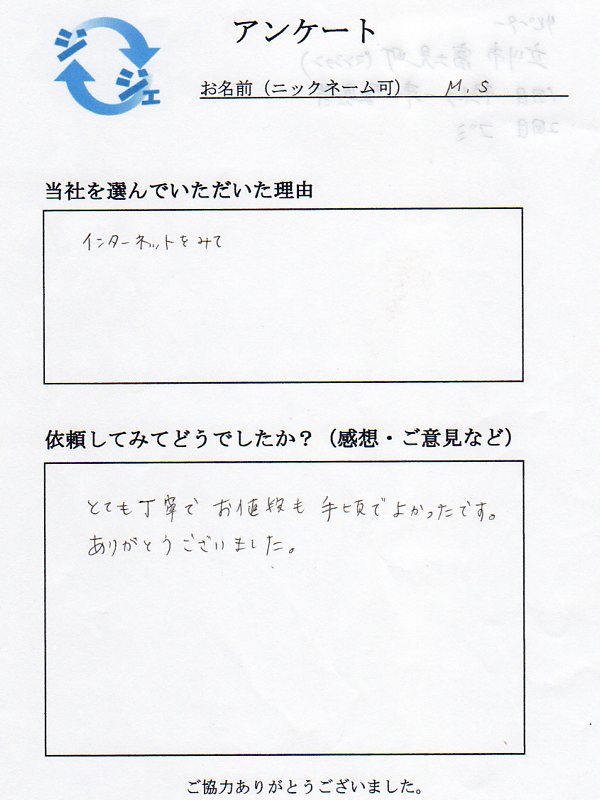 アンケート
ジ
ジェ
お名前（ニックネーム可） M.S
当社を選んでいただいた理由
インターネットをみて
依頼してみてどうでしたか？（感想・ご意見など）
とても丁寧で お値段も 手頃でよかったです。
ありがとうございました。
ご協力ありがとうございました。